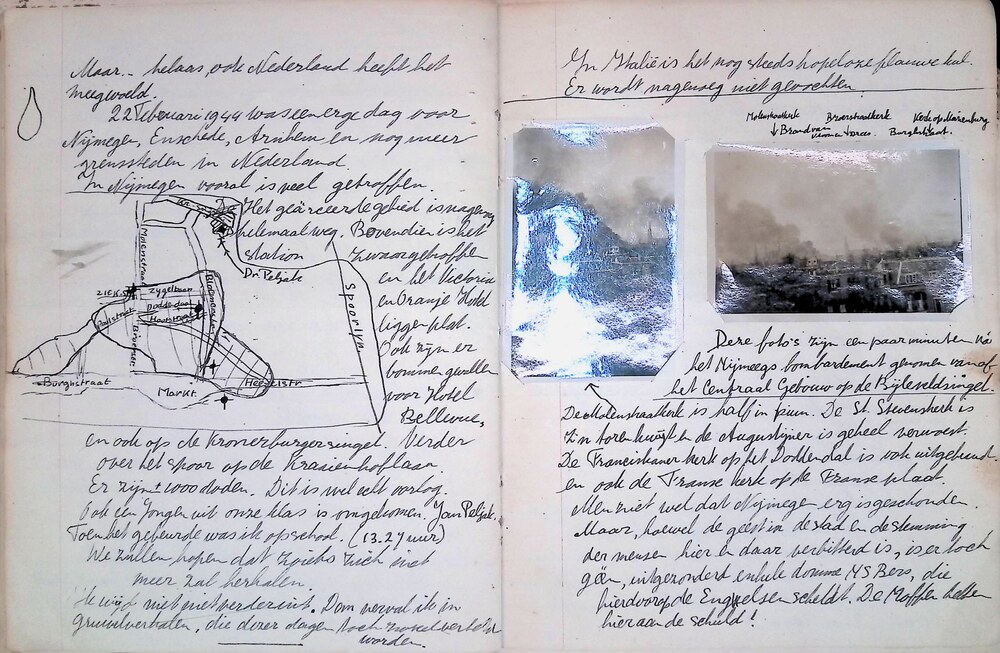 Maar.- helaas, ook Nederland heeft het
meegevoeld.
22 Februari 1944 was een erge dag voor
Nijmegen, Enschede, Arnhem en nog meer
grenssteden in Nederland.
In Nijmegen vooral is veel getroffen.
Het gearceerde gebied is nagenoeg
helemaal weg. Bovendien is het
station zwaar getroffen
en het Victoria
en Oranje Hotel
liggen plat.
Ook zijn er
bommen gevallen
voor Hotel
Bellevue,
en ook op de Kronenburgersingel. Verder
over het spoor op de Kraaienhoflaan.
Er zijn ± 1000 doden. Dit is wel echt oorlog.
Ook een jongen uit onze klas is omgekomen Jan Peljak
Toen het gebeurde was ik op school. (13.27 uur)
We zullen hopen dat zoiets zich niet
meer zal herhalen.
Ik wijd niet verder uit. Dan verval ik in
gruwelverhalen, die dezer dagen toch zoveel verteld
worden.
Dr. Peljak
Molenstraat
Ziek.
Zygelbaan
Doddendaal
Houtstraat
Broerstr.
Bloemerstr.
Spoorlyn
Burghstraat
Markt.
Hezelstr
In Italië is het nog steeds hopeloze flauwe kul.
Er wordt nagenoeg niet gevochten
Molenstraatkerk
Broerstraatkerk
Kerk op Marienburg
↓ Brand van
Vroom & Dreesm.
Burghstraat.
Deze foto's zijn een paar minuten na
het Nijmeegs bombardement genomen vanaf
het Centraal Gebouw op de Bijleveldsingel.
De Molenstraatkerk is half in puin. De St. Stevenskerk is
z'n toren kwijt en de Augustijner is geheel verwoest.
De Franciskaner kerk op het Doddendal is ook uitgebrand
en ook de Franse kerk op de Franse plaats.
Men ziet wel dat Nijmegen erg is geschonden.
Maar, hoewel de geest in de stad en de stemming
der mensen hier en daar verbitterd is, is er toch
géén, uitgezonderd enkele domme NSBers, die
hierdoor op de Engelsen scheldt. De Moffen hebben
hieraan de schuld!